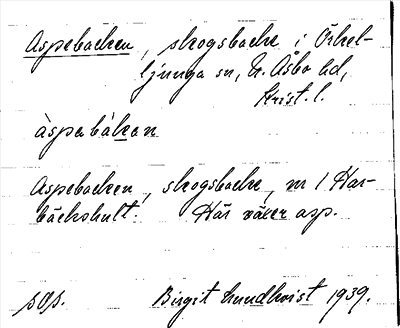 Aspebacken, skogsbacke i Örkel-
ljunga sn, N. Åsbo hd,
Krist. l.
àspəbákən
Aspebacken, skogsbacke, nr 1 Har-
bäckshult. Här växer asp.
sas. Birgit Lundkvist 1939.